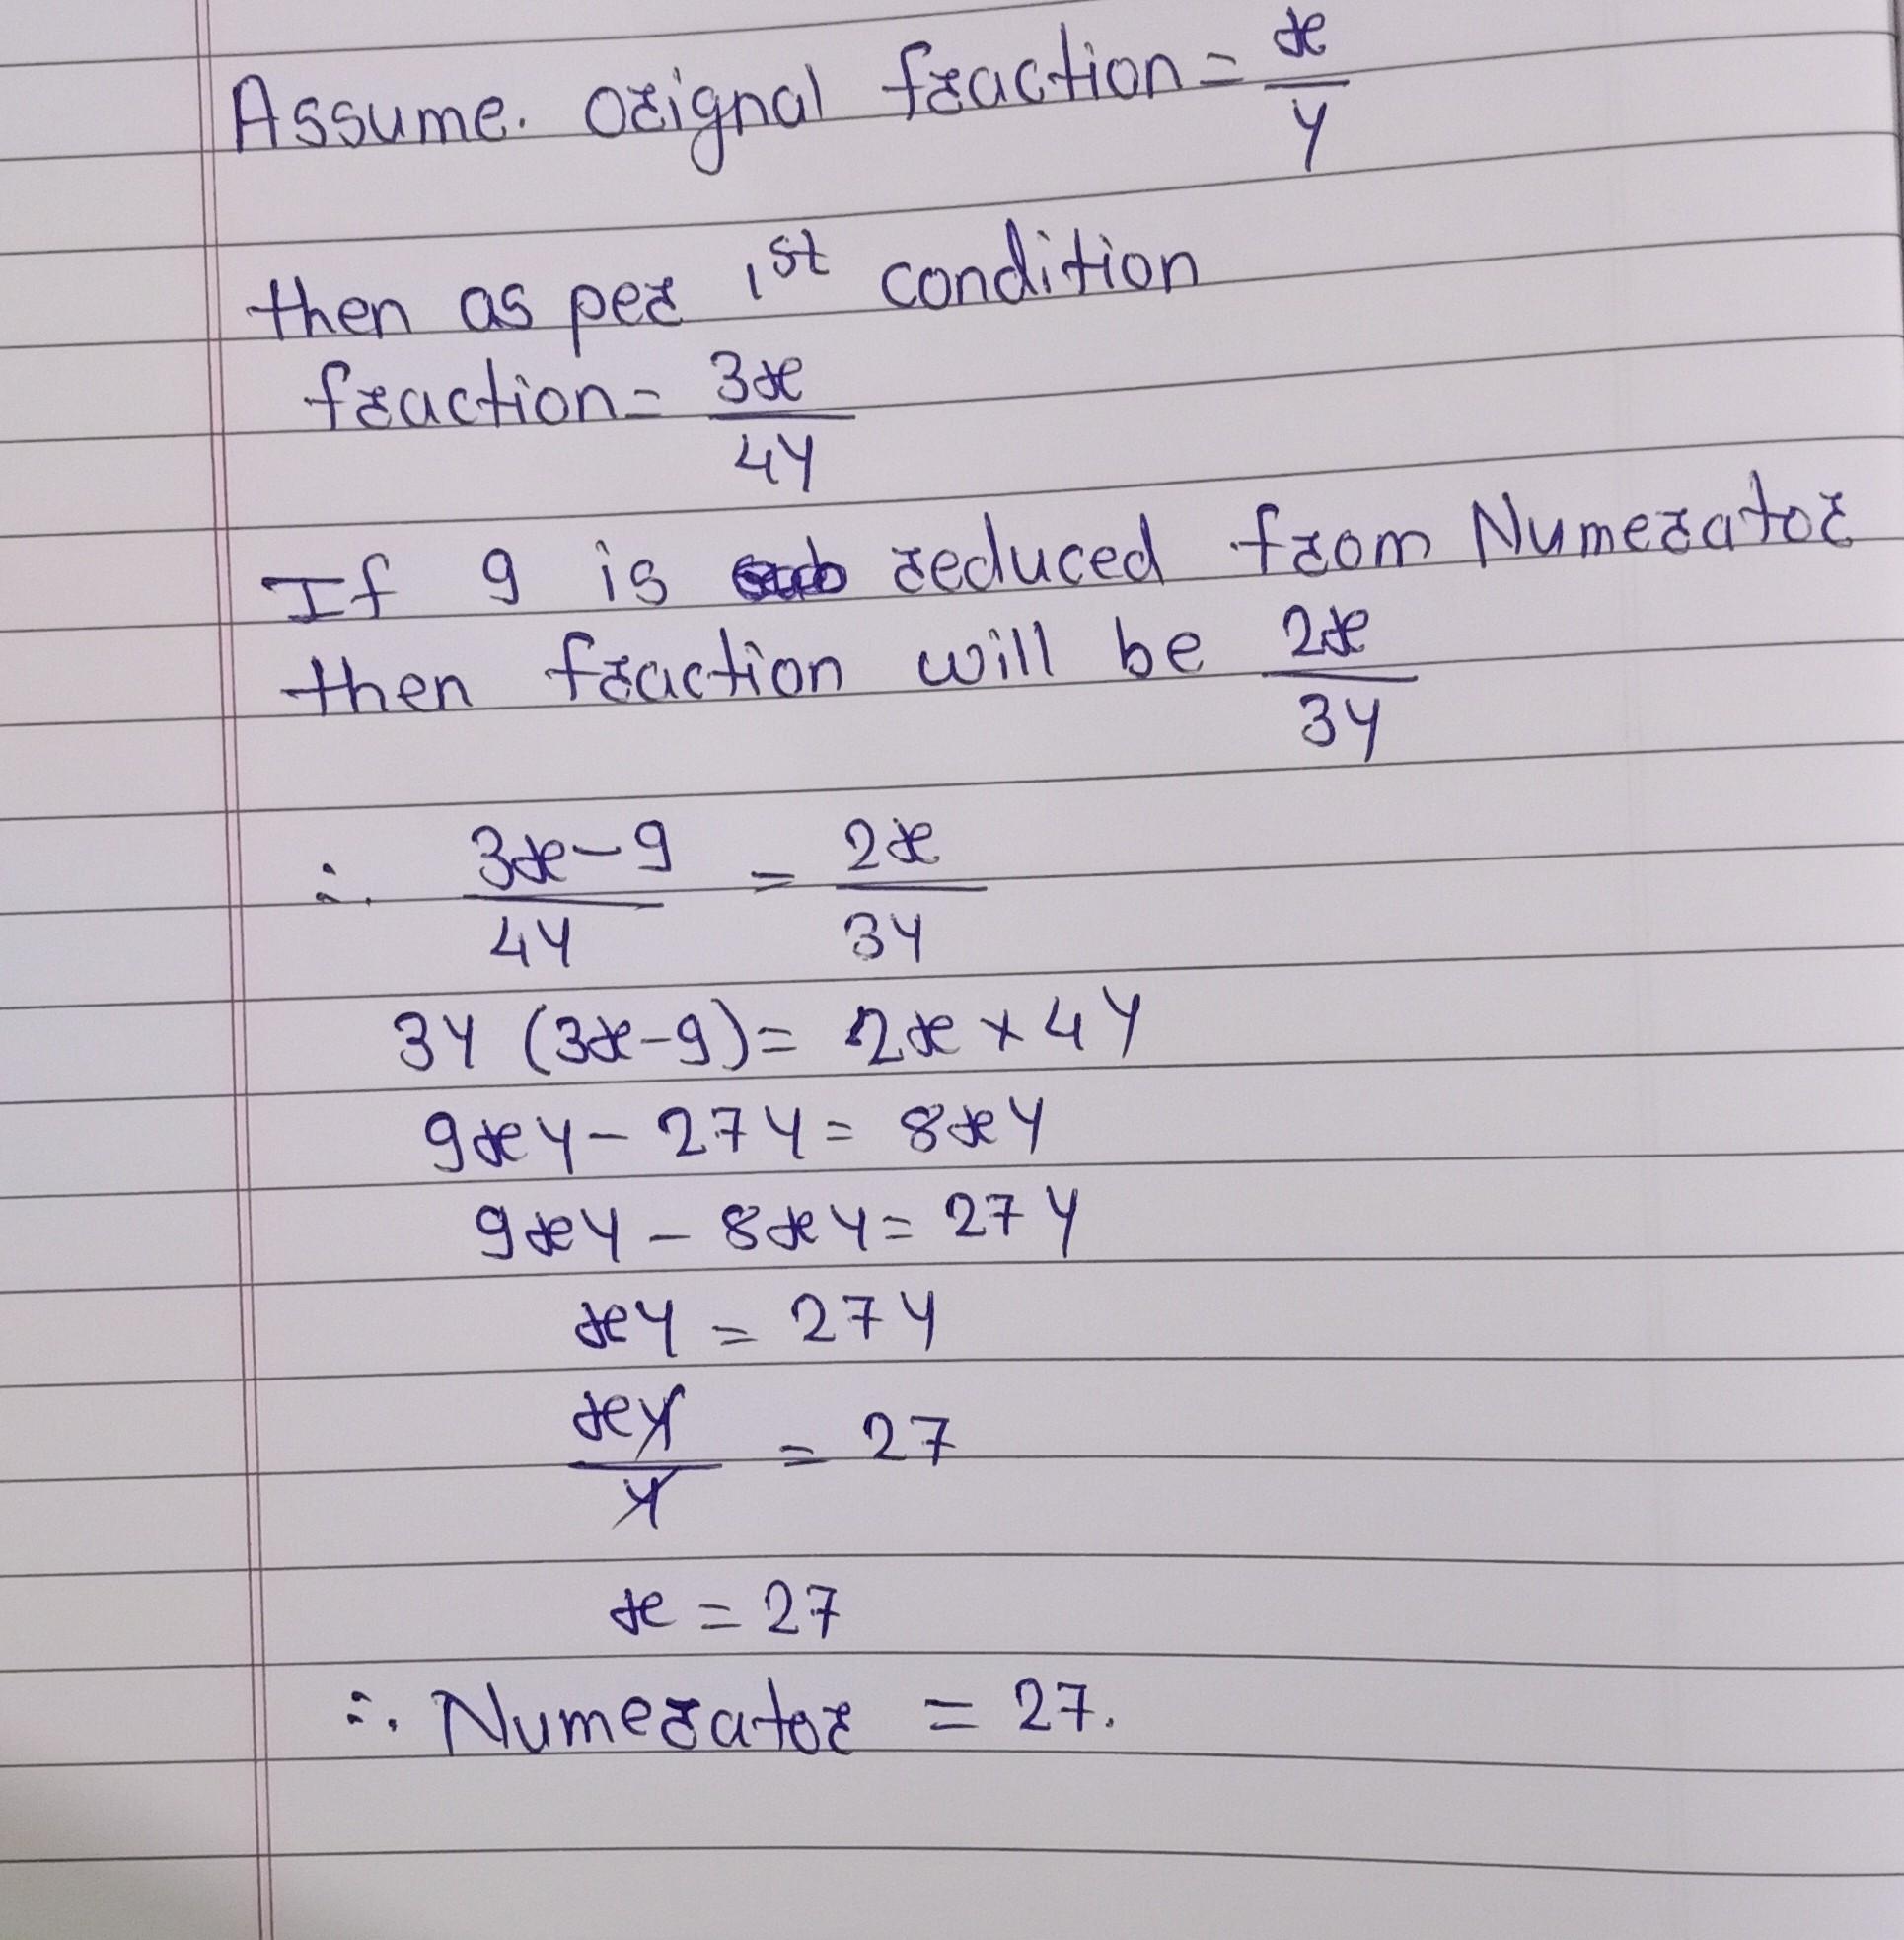 Assume. Orignal fraction = x/y
then as per 1st condition
fraction = 3x/4y
If 9 is reduced from Numerator
then fraction will be 2x/3y
∴ (3x-9)/4y = 2x/3y
3y (3x-9) = 2x × 4y
9xy - 27y = 8xy
9xy - 8xy = 27y
xy = 27y
xy/y = 27
x = 27
∴ Numerator = 27.